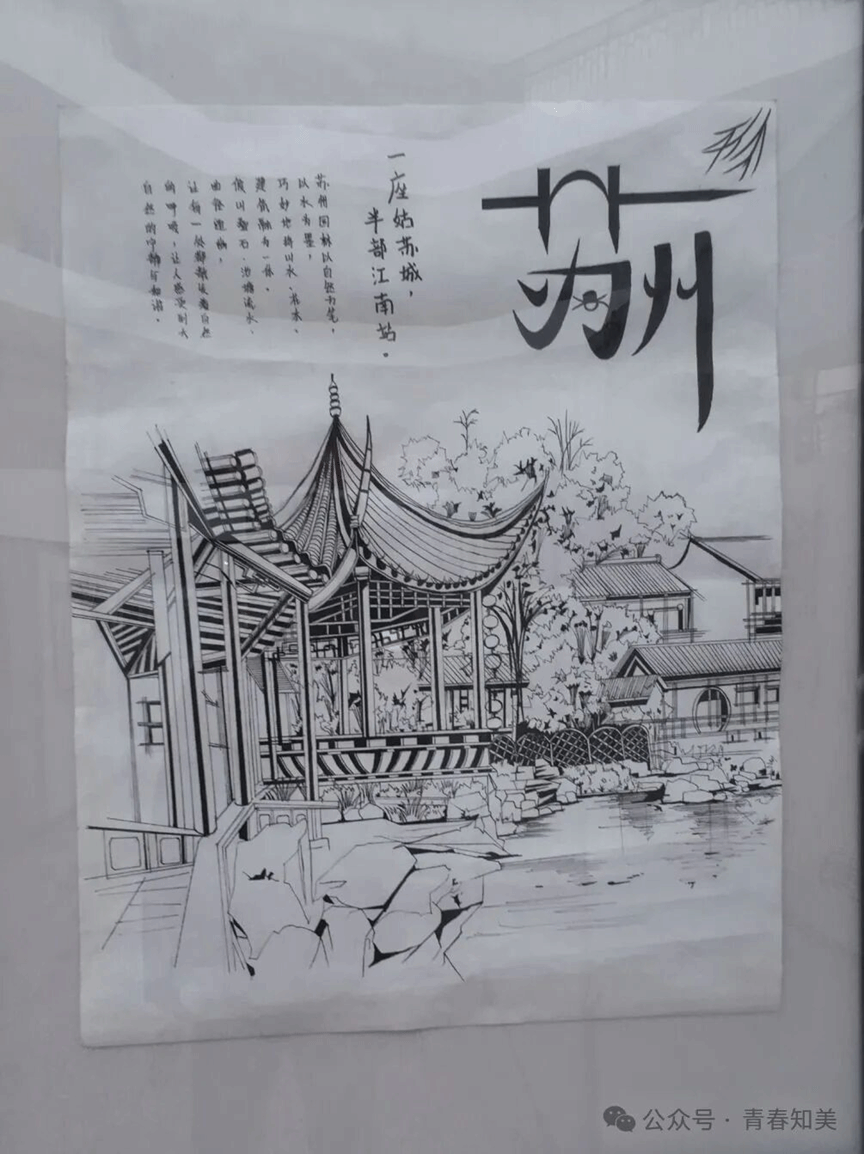 苏州
一座姑苏城，
半部江南站。
苏州园林以自然为笔，
以水为墨，
巧妙地将山水、花木、
建筑融为一体。
假山叠石、池塘流水、
曲径通幽，
让每一处都散发着自然
的呼吸，让人感受到大
自然的宁静与和谐。
公众号·青春知美